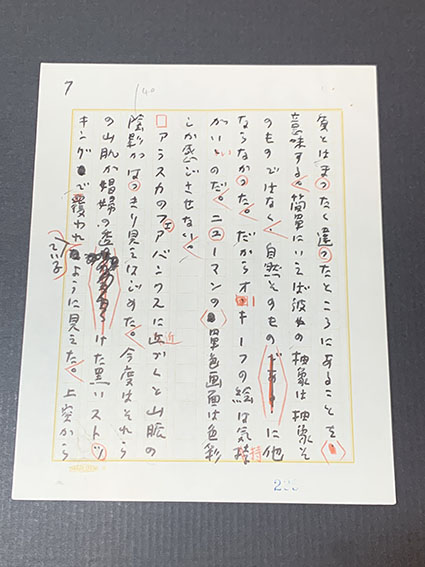 7
140
気とはまったく違ったところにあることを
意味する。簡単にいえば彼女の抽象は抽象そ
のものではなく、自然そのものに他
ならなかった。だからオキーフの絵は気持
がいいのだ。ニューマンの単色画面は色彩
しか感じさせない。
アラスカのフェアバンクスに近づくと山脈の
陰影がはっきり見えはじめた。今度はそれら
の山肌が娼婦の透けた黒いストッ
キングで覆われているように見えた。上空から